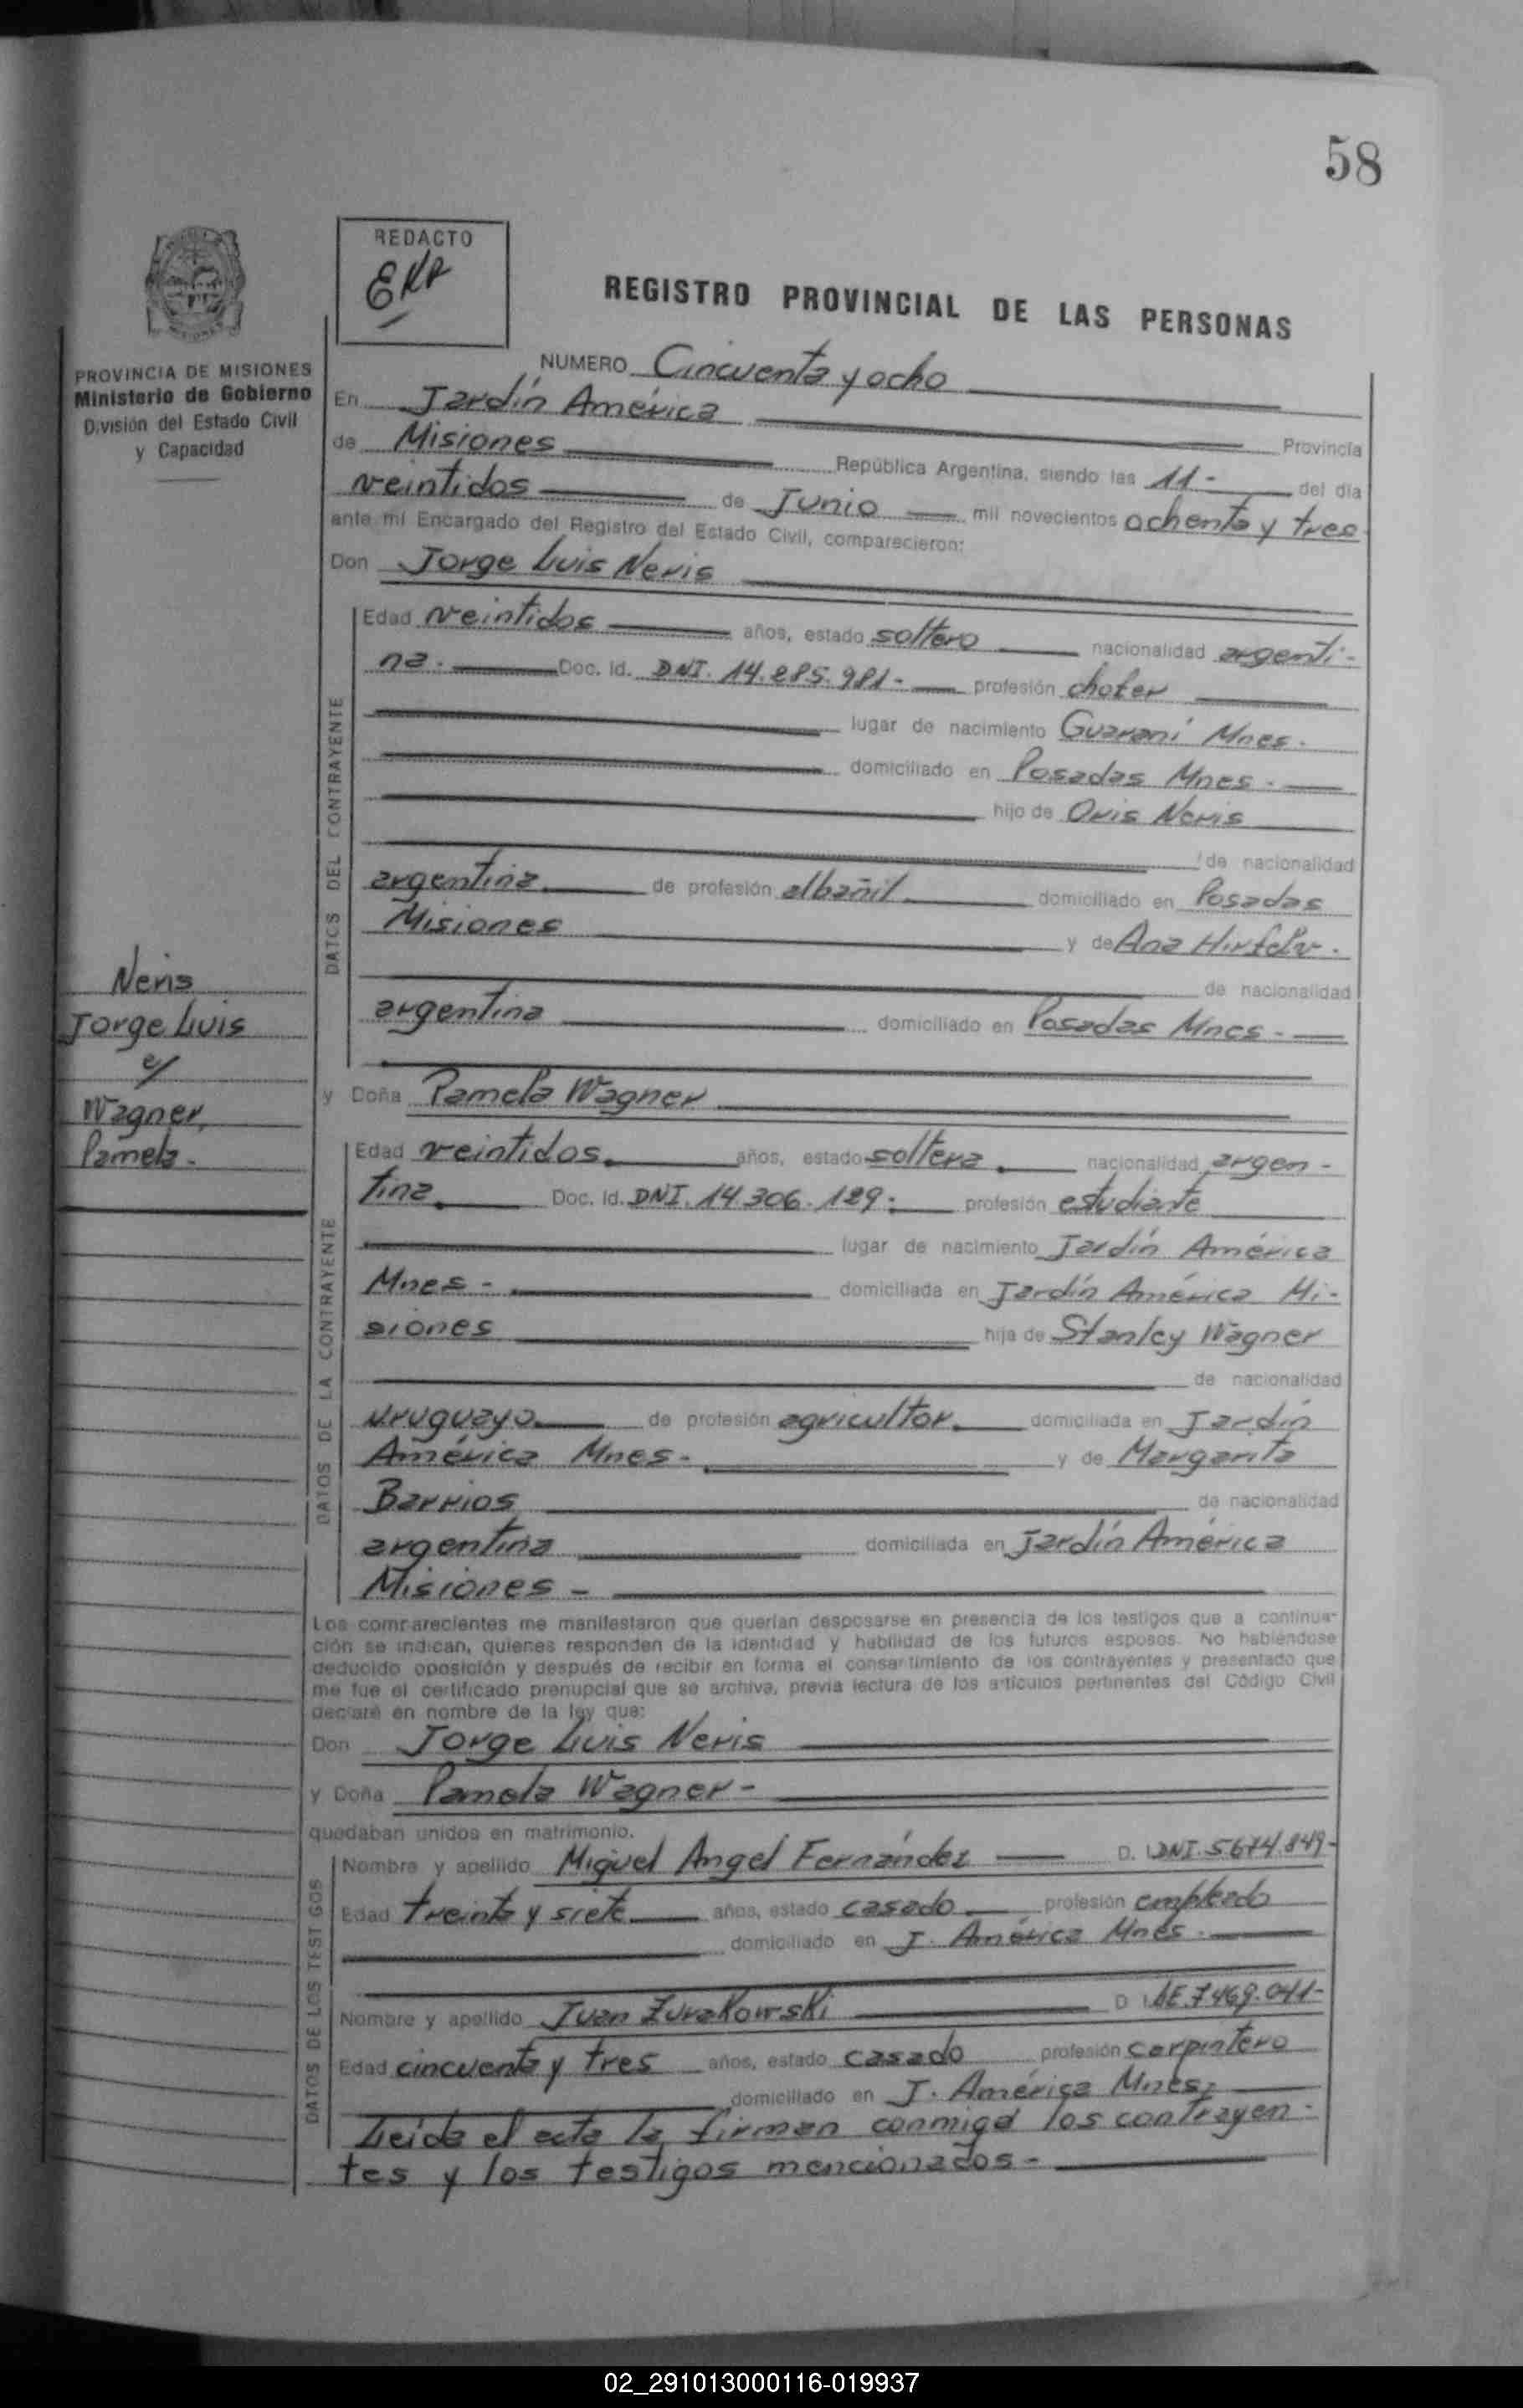 58
REDACTO
REGISTRO PROVINCIAL DE LAS PERSONAS
PROVINCIA DE MISIONES
Ministerio de Gobierno
División del Estado Civil
y Capacidad
NUMERO Cincuenta y ocho
En Jardín América
Provincia
de Misiones República Argentina, siendo las 11- del día
veintidos de Junio mil novecientos ochenta y tres
ante mí Encargado del Registro del Estado Civil, comparecieron:
Don Jorge Luis Neris
DATOS DEL CONTRAYENTE
Edad veintidos años, estado soltero nacionalidad argenti-
na.- Doc. Id. DNI. 14.285.981.- profesión chofer
lugar de nacimiento Guaraní Mnes.
domiciliado en Posadas Mnes.-
hijo de Ovis Neris
de nacionalidad
argentina de profesión albañil domiciliado en Posadas
Misiones y de Ana
de nacionalidad
argentina domiciliado en Posadas Mnes.-
Neris
Jorge Luis
c/
Wagner,
Pamela.-
y Doña Pamela Wagner
DATOS DE LA CONTRAYENTE
Edad veintidos. años, estado soltera. nacionalidad argen-
tina. Doc. Id. DNI. 14.306.129.- profesión estudiante
lugar de nacimiento Jardín América
Mnes- domiciliada en Jardín América Mi-
siones hija de Stanley Wagner
de nacionalidad
uruguayo de profesión agricultor. domiciliada en Jardín
América Mnes- y de Margarita
Barrios de nacionalidad
argentina domiciliada en Jardín América
Misiones-
Los comparecientes me manifestaron que querían desposarse en presencia de los testigos que a continua-
ción se indican, quienes responden de la identidad y habilidad de los futuros esposos. No habiéndose
deducido oposición y después de recibir en forma el consentimiento de los contrayentes y presentado que
me fue el certificado prenupcial que se archiva, previa lectura de los artículos pertinentes del Código Civil
declaré en nombre de la ley que:
Don Jorge Luis Neris
y Doña Pamela Wagner-
quedaban unidos en matrimonio.
DATOS DE LOS TESTIGOS
Nombre y apellido Miguel Angel Fernández D. I. DNI. 5674.849-
Edad treinta y siete años, estado casado profesión empleado
domiciliado en J. América Mnes.
Nombre y apellido Juan Zurakowski D. I. LE.7469.041-
Edad cincuenta y tres años, estado casado profesión carpintero
domiciliado en J. América Mnes.
Leida el acta la firman conmigo los contrayen-
tes y los testigos mencionados-
02_291013000116-019937